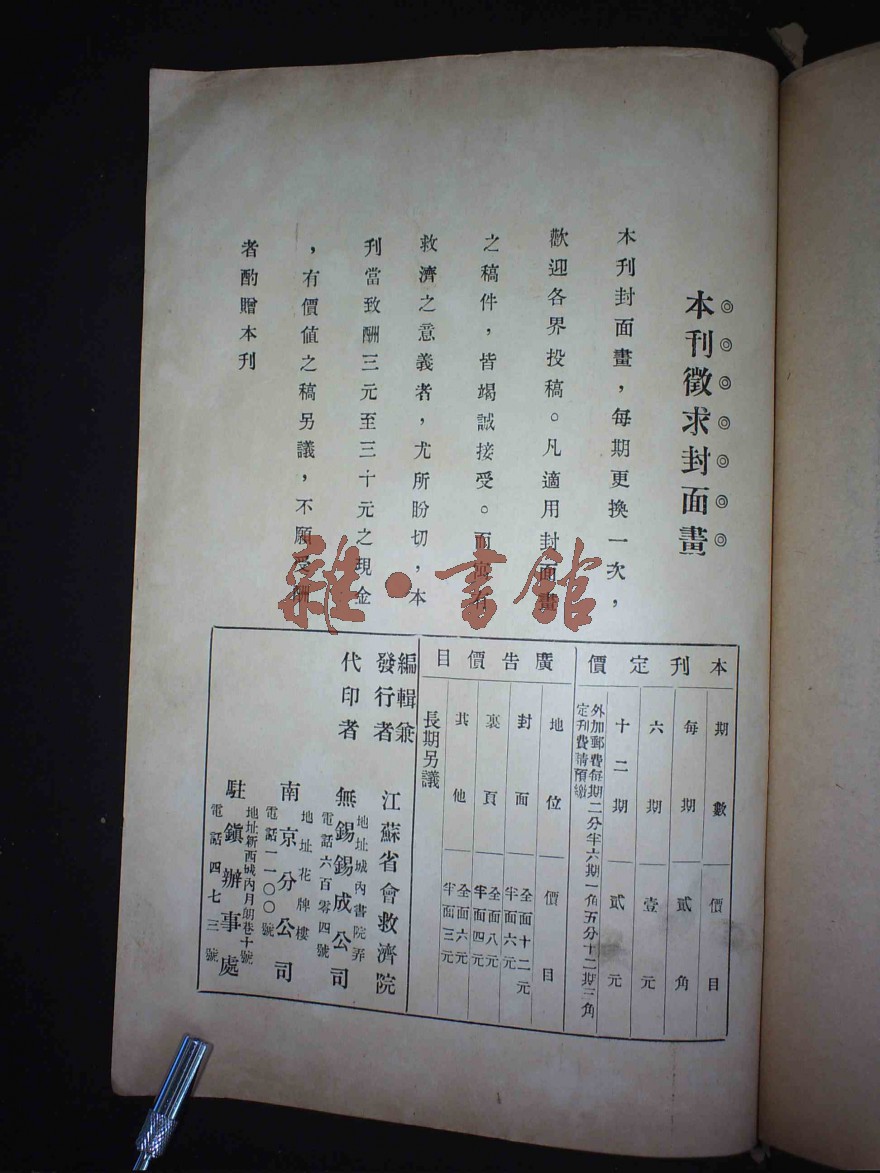 本刊徵求封面畫
◎◎◎◎◎◎◎
本刊封面畫，每期更換一次，
歡迎各界投稿。凡適用封面畫
之稿件，皆竭誠接受。而寓有
救濟之意義者，尤所盼切，本
刊當致酬三元至三十元之現金
，有價值之稿另議，不願受酬
者酌贈本刊
雜·書館
本刊定價
期數 價目
每期 貳角
六期 壹元
十二期 貳元
外加郵費每期二分半六期一角五分十二期三角
定刊費請預繳
廣告價目
地位 價目
封面 全面十二元 半面六元
裏頁 全面八元 半面四元
其他 全面六元 半面三元
長期另議
編輯兼
發行者 江蘇省會救濟院
地址城內書院弄
代印者 無錫錫成公司
電話六百零四號
地址花牌樓
南京分公司
電話一一〇〇號
地址新西城內月朗巷十號
駐鎮辦事處
電話四七三號